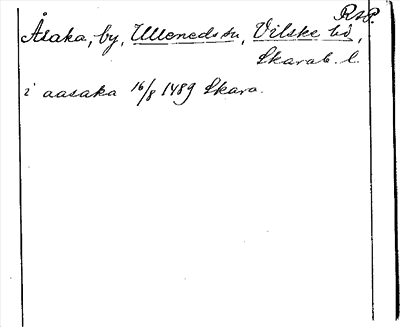 RAP.
Åsaka, by, Ullened sn, Vilske hd,
Skarab. l.
i aasaka 16/8 1489 Skara.